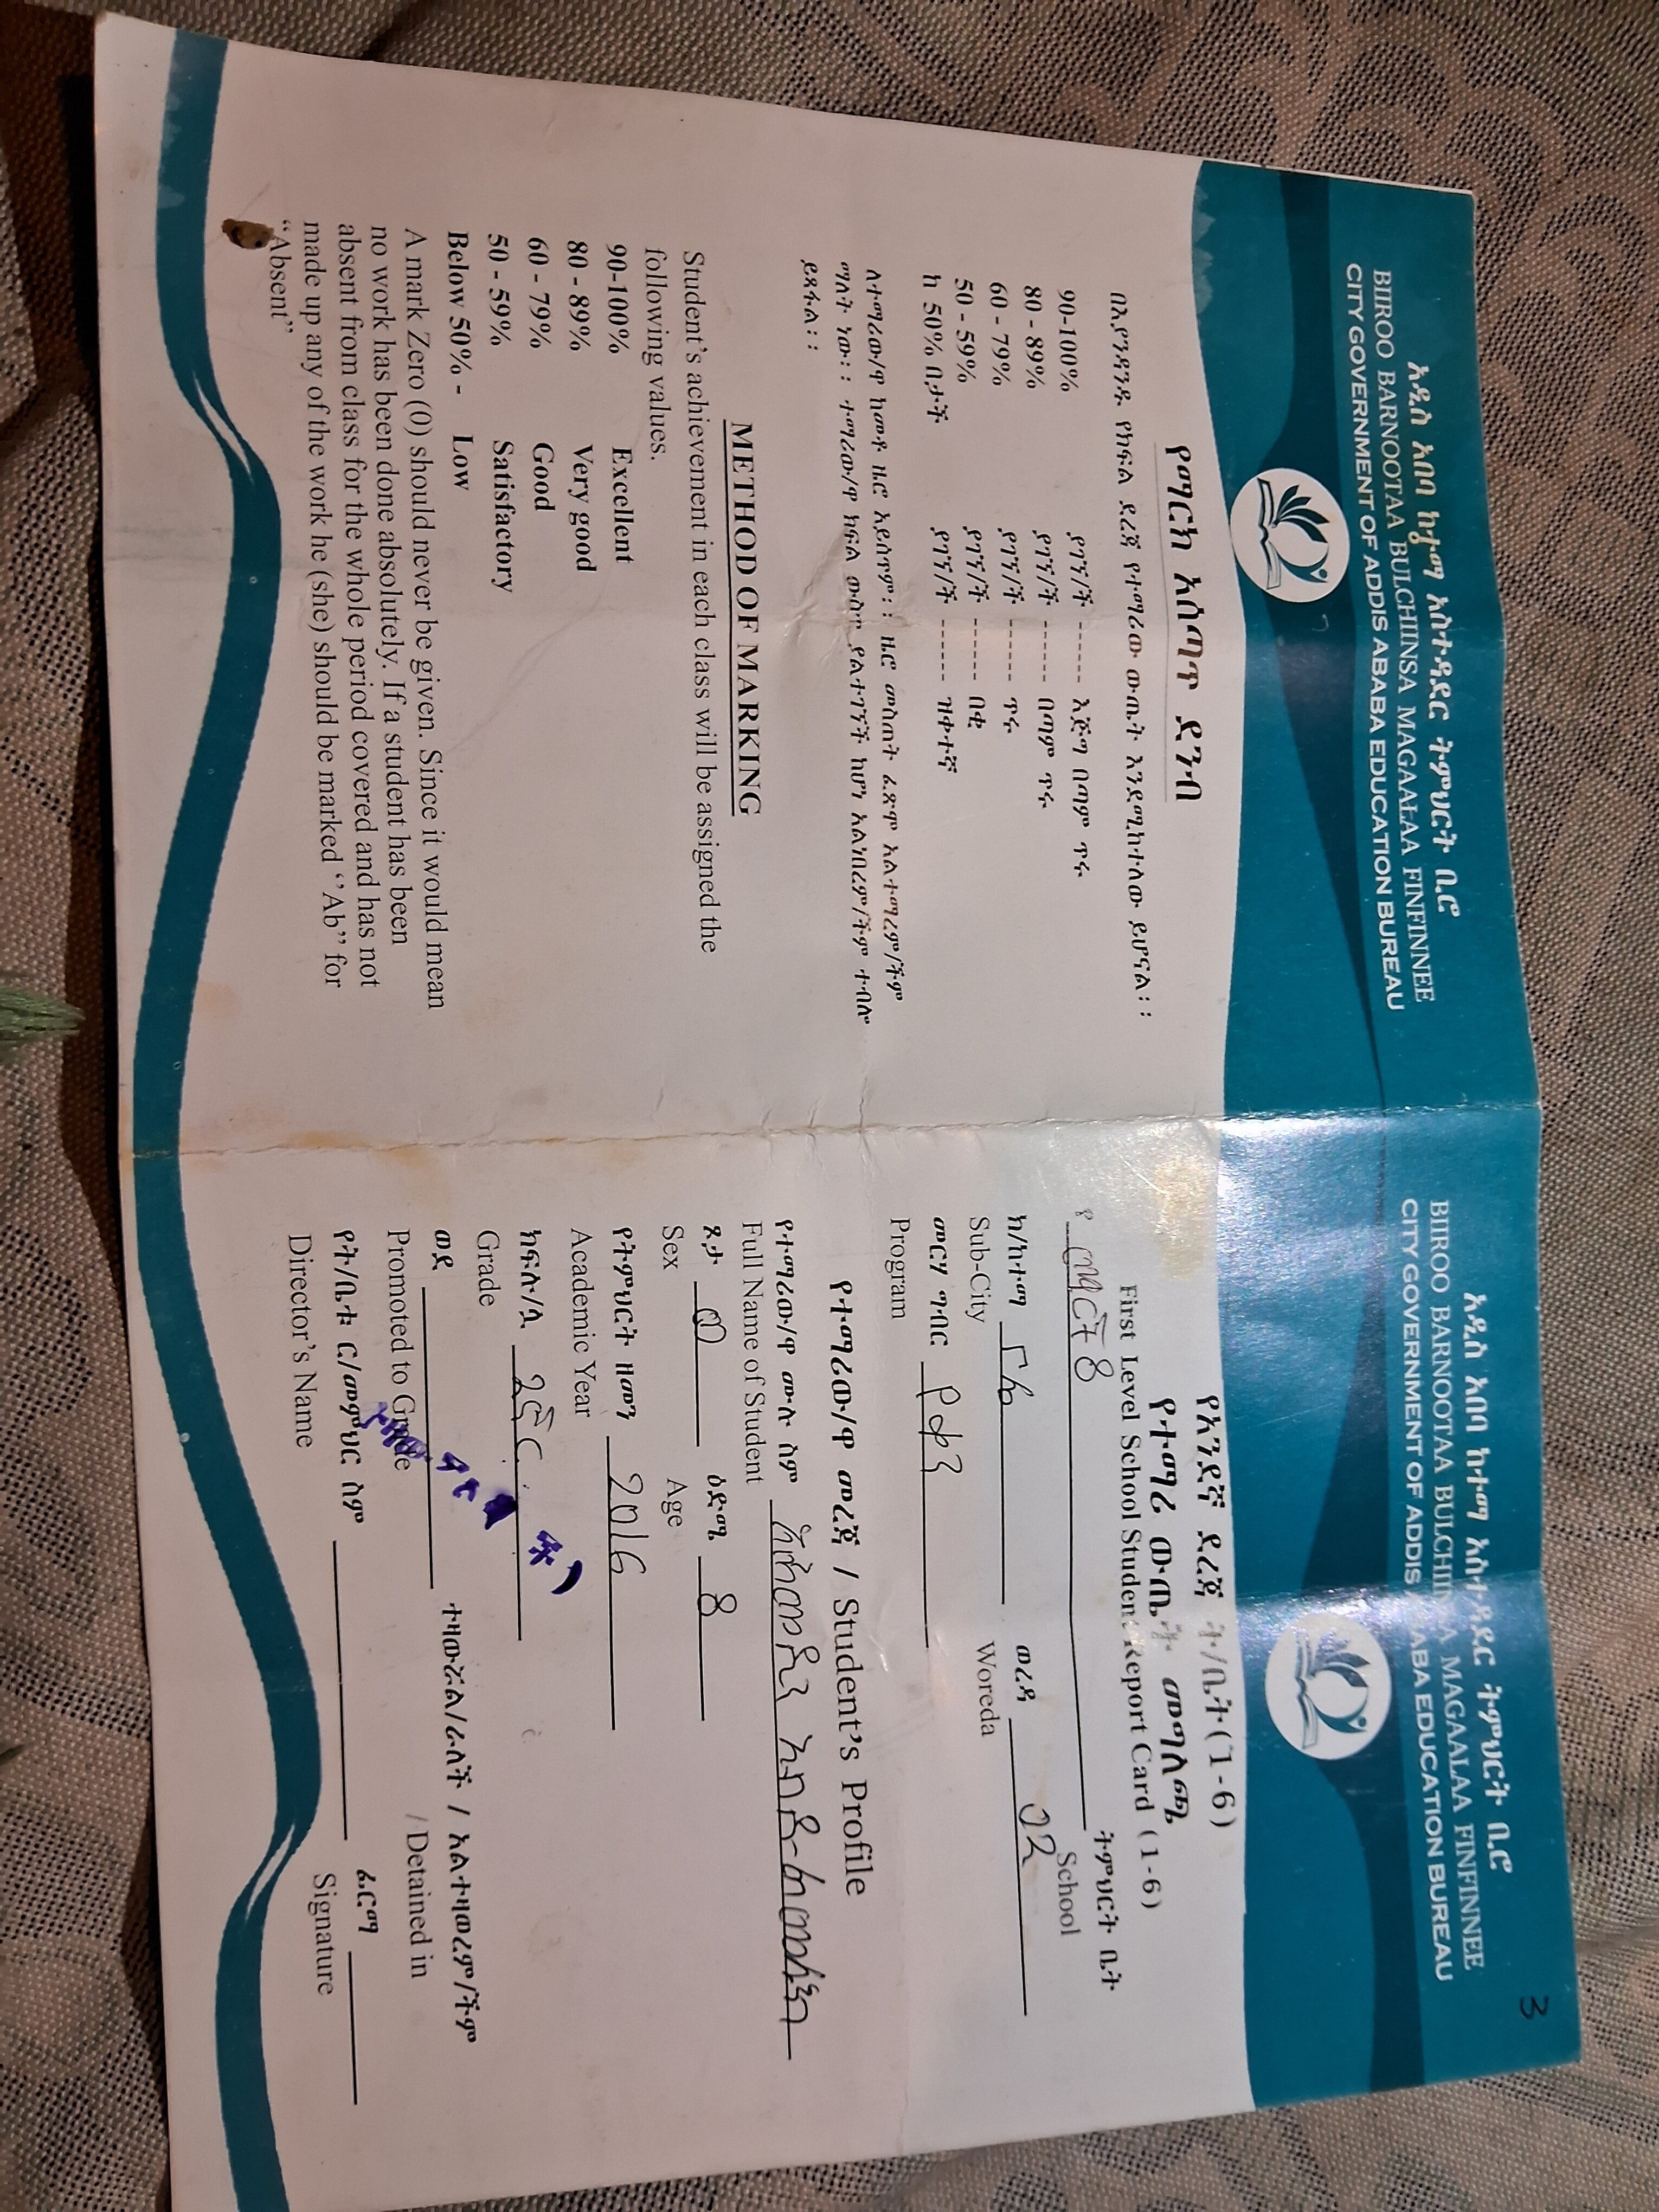 አዲስ አበባ ከተማ አስተዳደር ትምህርት ቢሮ
BIROO BARNOOTAA BULCHIINSA MAGAALAA FINFINNEE
CITY GOVERNMENT OF ADDIS ABABA EDUCATION BUREAU
የማርክ አሰጣጥ ደንብ
በእያንዳንዱ የክፍል ደረጃ የተማሪው ውጤት እንደሚከተለው ይሆናል፡፡
90-100% ያገኘ/ች ------ እጅግ በጣም ጥሩ
80 - 89% ያገኘ/ች ------ በጣም ጥሩ
60 - 79% ያገኘ/ች ------ ጥሩ
50 - 59% ያገኘ/ች ------ በቂ
ከ 50% በታች ያገኘ/ች ------ ዝቅተኛ
ለተማሪው/ዋ ከመቶ ዜሮ አይሰጥም፡፡ ዜሮ መስጠት ፈጽሞ አልተማረም/ችም
ማለት ነው፡፡ ተማሪው/ዋ ክፍል ውስጥ ያልተገኘች ከሆነ አልነበረም/ችም ተብሎ
ይጻፋል፡፡
METHOD OF MARKING
Student's achievement in each class will be assigned the
following values.
90-100% Excellent
80 - 89% Very good
60 - 79% Good
50 - 59% Satisfactory
Below 50% - Low
A mark Zero (0) should never be given. Since it would mean
no work has been done absolutely. If a student has been
absent from class for the whole period covered and has not
made up any of the work he (she) should be marked ‘’Ab” for
“Absent”
3
አዲስ አበባ ከተማ አስተዳደር ትምህርት ቢሮ
BIROO BARNOOTAA BULCHIINSA MAGAALAA FINFINNEE
CITY GOVERNMENT OF ADDIS ABABA EDUCATION BUREAU
የአንደኛ ደረጃ ት/ቤት (1-6)
የተማሪ ውጤት መግለጫ
First Level School Student Report Card (1-6)
የ መማርት 8 ትምህርት ቤት
School
ክ/ከተማ ወረዳ 02
Sub-City Woreda
መርሃ ግብር የቀን
Program
የተማሪው/ዋ መረጃ / Student's Profile
የተማሪው/ዋ ሙሉ ስም
Full Name of Student
ጾታ ወ ዕድሜ 8
Sex Age
የትምህርት ዘመን 2016
Academic Year
ክፍል/ሏ 2ኛ
Grade
ወደ ተዛውሯል/ራለች / አልተዛወረም/ችም
Promoted to Grade / Detained in
የት/ቤቱ ር/መምህር ስም ፊርማ
Director's Name Signature